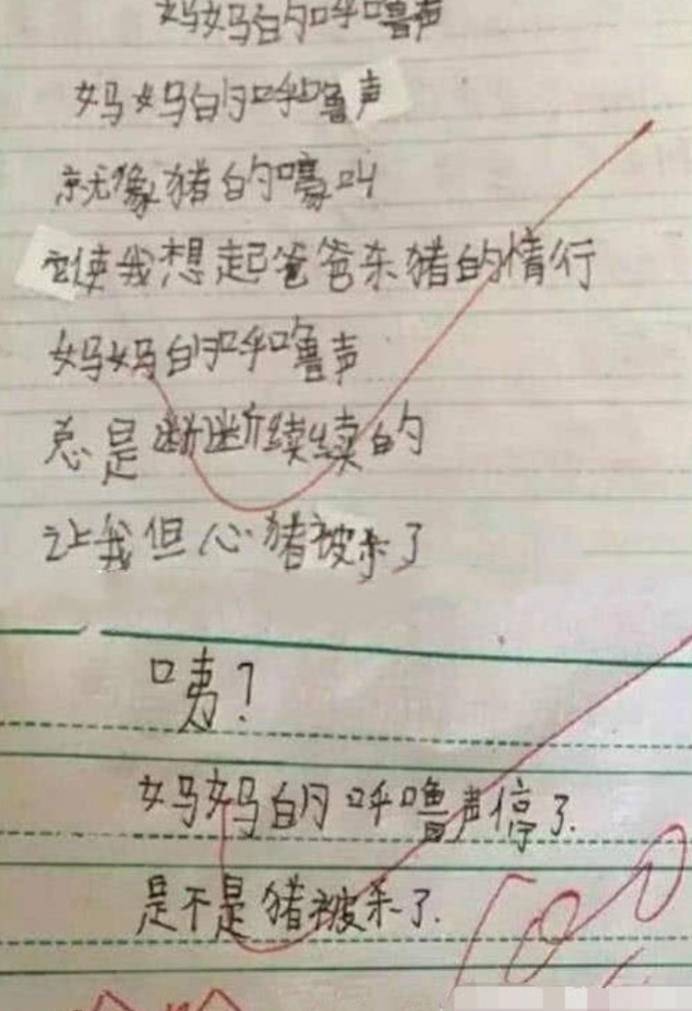 妈妈的呼噜声
妈妈的呼噜声
就像猪的嚎叫
它使我想起爸爸杀猪的情行
妈妈的呼噜声
总是断断续续的
让我但心猪被杀了
咦？
妈妈的呼噜声停了.
是不是猪被杀了.
100